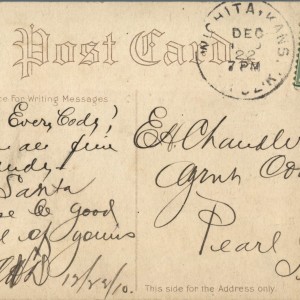 Post Card
WICHITA, KANS.
DEC
22
7 PM
ce For Writing Messages
Every Body!
are fine
Santa
be good
of yours
12/22/10.
E.H. Chandler
Agnt
Pearl
This side for the Address only.